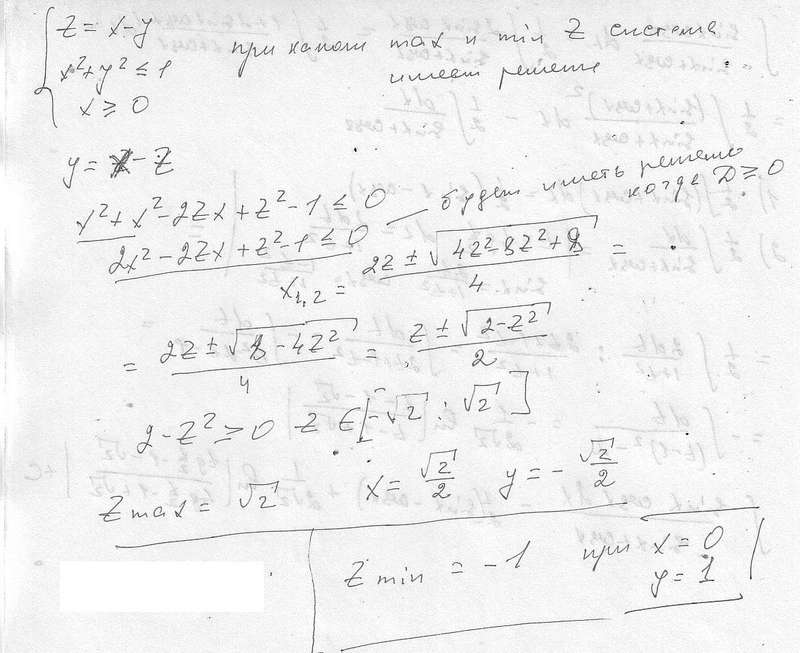 z = x - y
x² + y² ≤ 1
x ≥ 0
при каком max и min z система
имеет решение
y = x - z
x² + x² - 2zx + z² - 1 ≤ 0
2x² - 2zx + z² - 1 ≤ 0 — будет иметь решение
когда D ≥ 0
x₁,₂ = (2z ± √(4z² - 8z² + 8)) / 4 =
= (2z ± √(8 - 4z²)) / 4 = (z ± √(2 - z²)) / 2
2 - z² ≥ 0 z ∈ [-√2 ; √2]
z max = √2 x = √2/2 y = -√2/2
z min = -1 при x = 0
y = 1